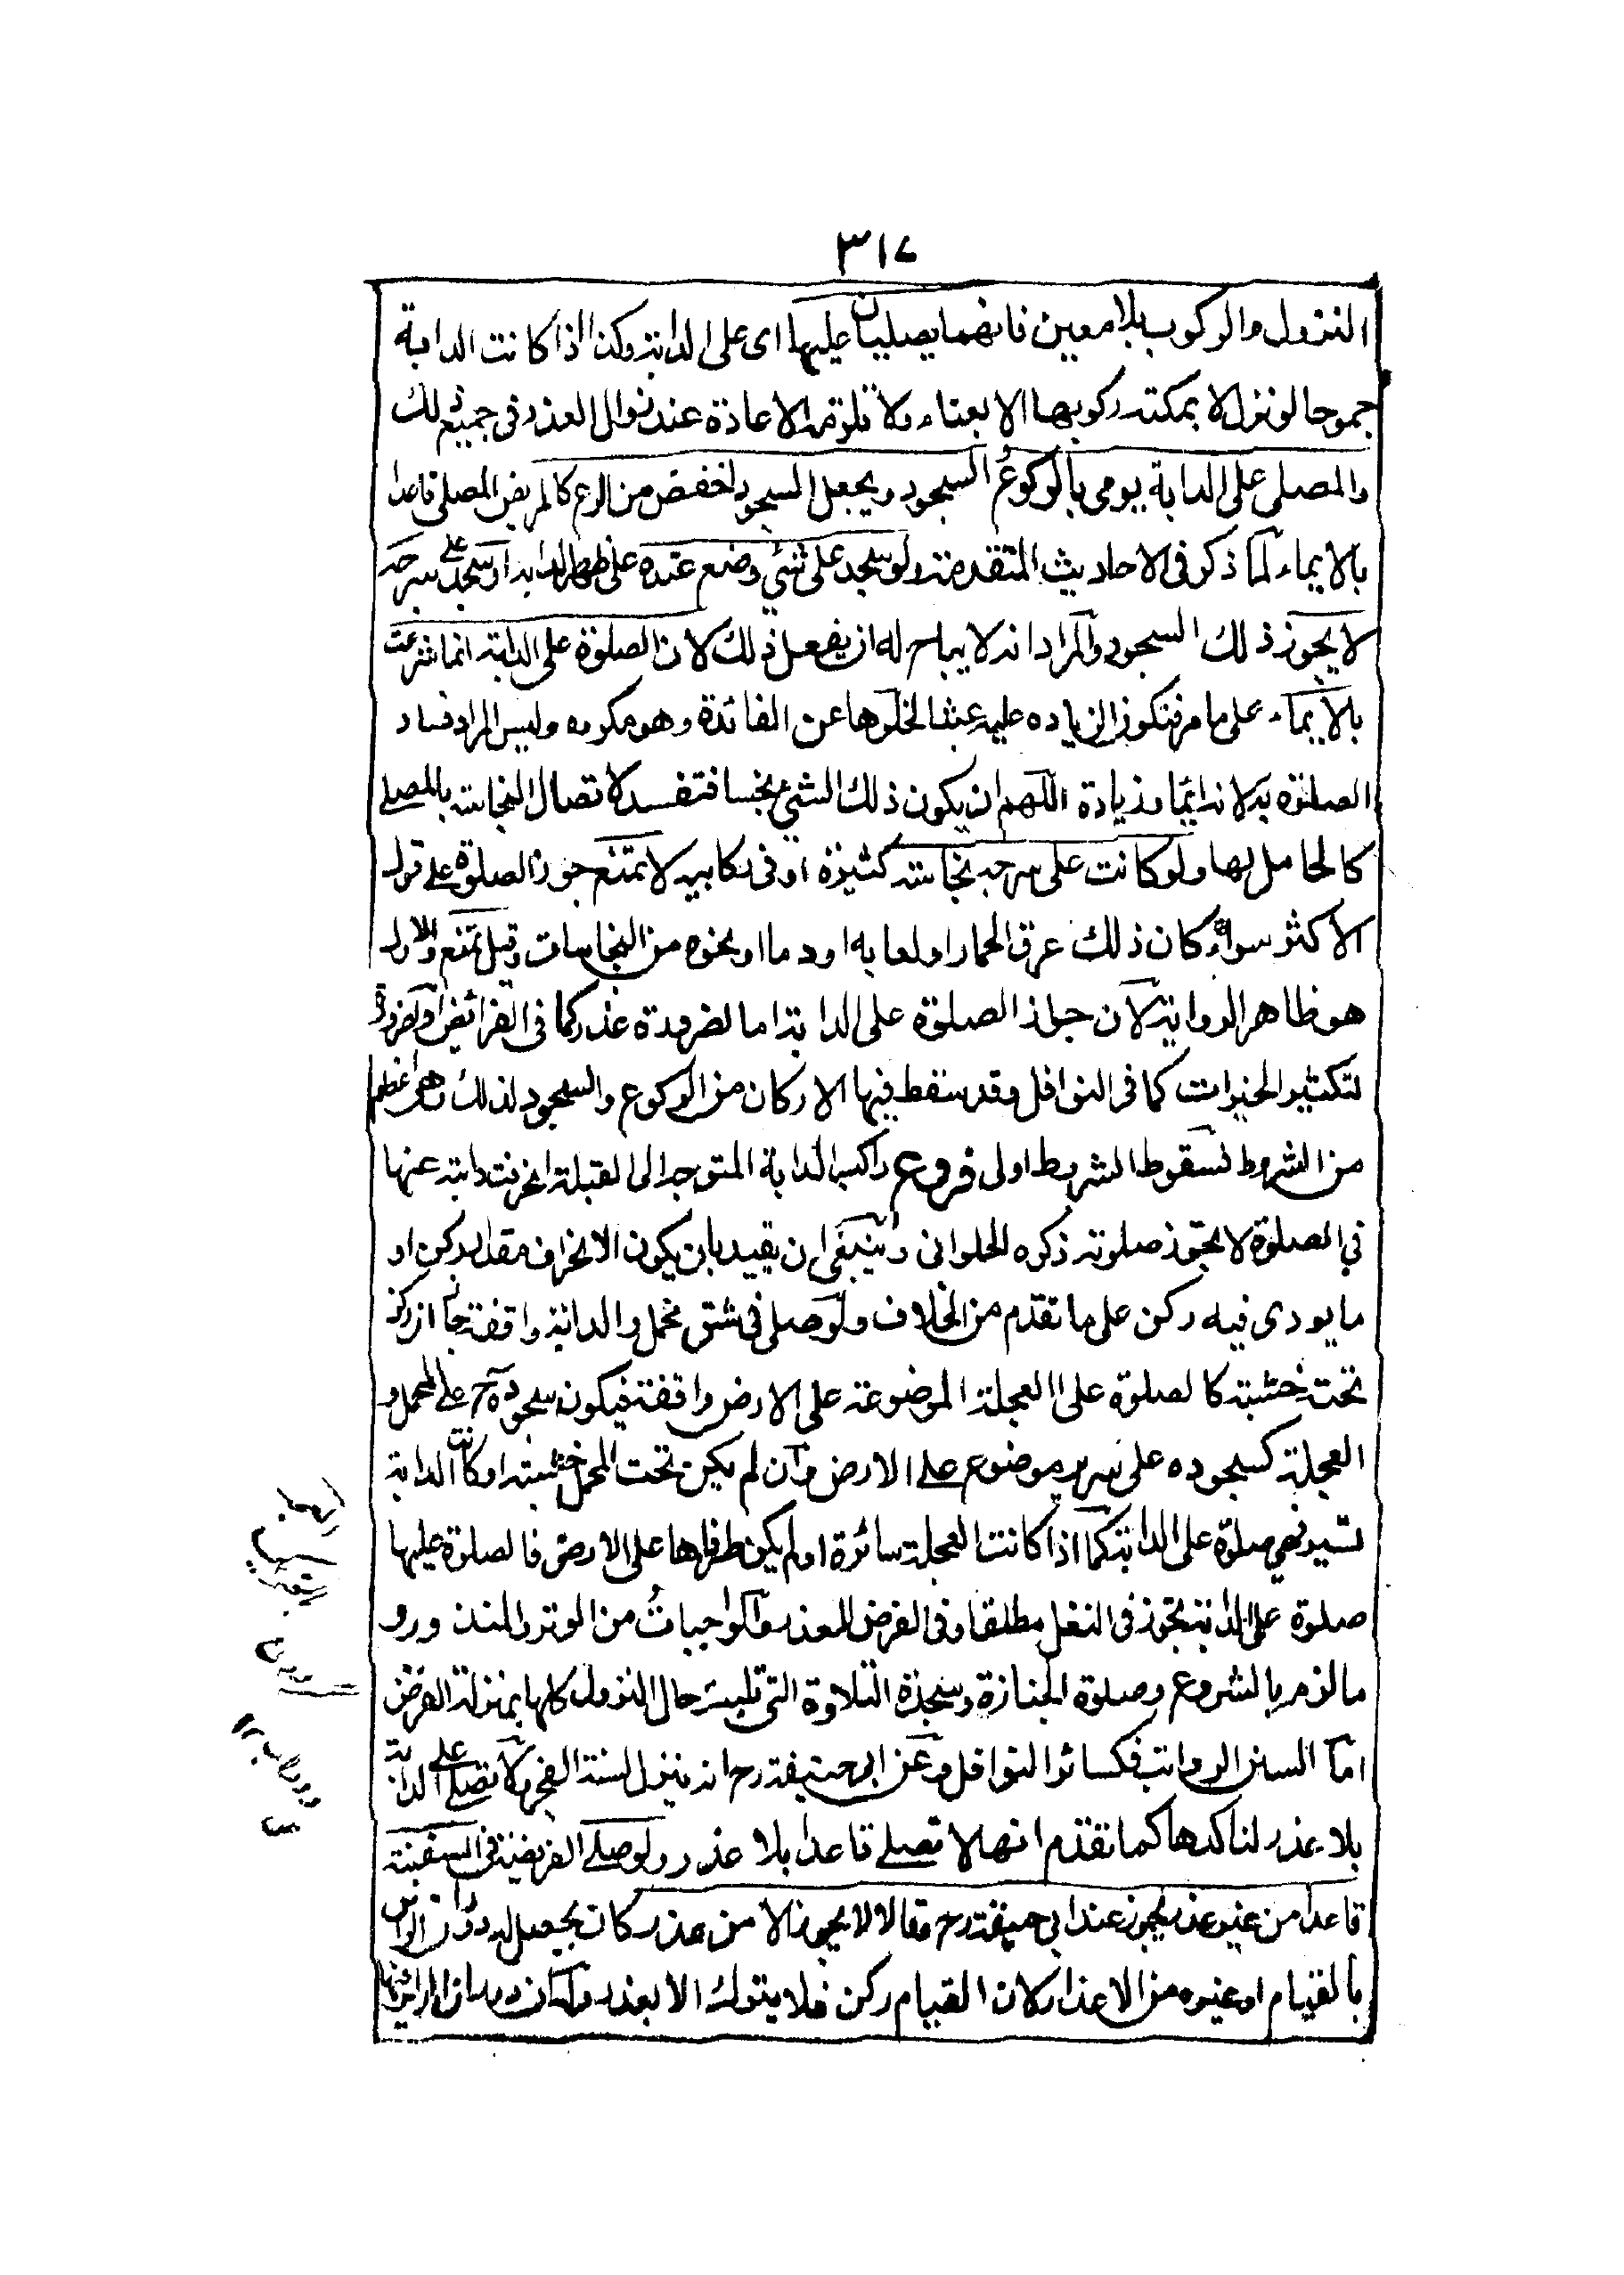 ٣١٧
النزول والركوب بلا معين فانهما يصليان عليها اى على الدابة وكذا اذا كانت الدابة
جموحا لو نزل لا يمكنه ركوبها الا بعناء ولا تلزمه الاعادة عند زوال العذر فى جميع ذلك
والمصلى على الدابة يومى بالركوع والسجود ويجعل السجود اخفض من الركوع كالمريض المصلى قاعدا
بالايماء لما ذكر فى الاحاديث المتقدمة ولو سجد على شئ وضع عنده على ظهر الدابة او سجد على سرجه
لا يجوز ذلك السجود والمراد انه لا يباح له ان يفعل ذلك لان الصلوة على الدابة انما شرعت
بالايماء على ما مر فتكون الزيادة عليه عبثا لخلوها عن الفائدة وهو مكروه وليس المراد فساد
الصلوة به لانه ايماء وزيادة اللهم ان يكون ذلك الشئ نجسا فتفسد لاتصال النجاسة بالمصلے
كالحامل لها ولو كانت على سرجه نجاسة كثيرة او فى ركابيه لا تمنع جواز الصلوة على قول
الاكثر سواء كان ذلك عرق الحمار او لعابه او دما او نحوه من النجاسات وقيل تمنع والاول
هو ظاهر الرواية لان جواز الصلوة على الدابة اما لضرورة عذر كما فى الفرائض او لضرورة
لتكثير الخيرات كما فى النوافل وقد سقط فيها الاركان من الركوع والسجود لذلك وهى اعظم
من الشروط فسقوط الشرط اولى فروع راكب الدابة المتوجه الى القبلة انحرفت دابته عنها
فى الصلوة لا تجوز صلوته ذكره الحلوانى وينبغى ان يقيد بان يكون الانحراف مقدار ركن او
ما يودى فيه ركن على ما تقدم من الخلاف ولو صلى فى شق محمل والدابة واقفة جاز ان ركز
تحت خشبته كالصلوة على العجلة الموضوعة على الارض واقفة فيكون سجوده ح على المحمل و
العجلة كسجوده على سرير موضوع على الارض وان لم يكن تحت المحمل خشبته او كانت الدابة
تسير فهى صلوة على الدابة كما اذا كانت العجلة سائرة او لم يكن طرفاها على الارض فالصلوة عليها
صلوة على الدابة تجوز فى النفل مطلقا وفى الفرض للعذر والواجبات من الوتر والمنذورو
ما لزم بالشروع وصلوة الجنازة وسجدة التلاوة التى تليت حال النزول كلها بمنزلة الفرض
اما السنن الرواتب فكسائر النوافل وعن ابى حنيفة رح انه ينزل لسنة الفجر ولا تصلى على الدابة
بلا عذر لتاكدها كما تقدم انها لا تصلے قاعدا بلا عذر ولو صلے الفريضة فى السفينة
قاعدا من غير عذر يجوز عند ابى حنيفة رح وقالا لا يجوز الا من عذر كان يجعل له دوران الراس
بالقيام او غيره من الاعذار لان القيام ركن فلا يترك الا بعذر وله ان دوران الراس فيها